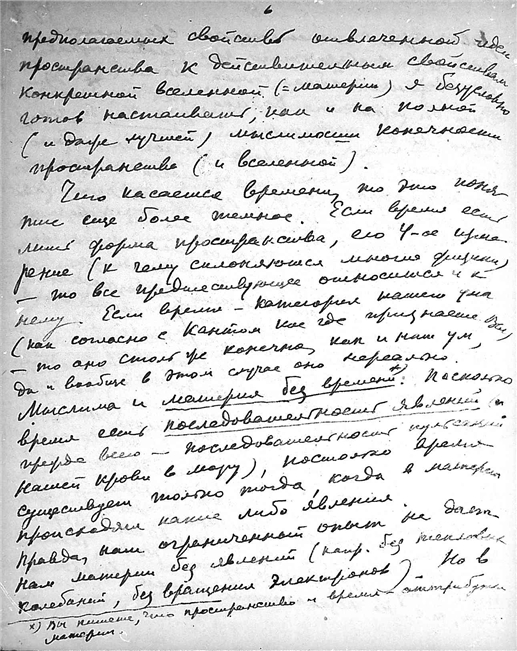 6
предполагаемых свойств отвлеченной идеи
пространства к действительным свойствам
конкретной вселенной (=материи) я безусловно
готов настаивать, как и на полной
(и даже лучшей) мыслимости конечности
пространства (и вселенной).
Что касается времени, то это поня-
тие еще более темное. Если время есть
лишь форма пространства, его 4-ое изме-
рение (к чему склоняются многие физики)
— то все предшествующее относится и к
нему. Если время – категория нашего ума
(как согласно с Кантом кое где признаете Вы),
— то оно столь же конечно, как и наш ум,
да и вообще в этом случае оно нереально.
Мыслима и материя без времени *). Поскольку
время есть последовательность явлений (и
прежде всего — последовательность пульсаций
нашей крови в мозгу), постольку время
существует только тогда, когда в материи
происходят какие либо явления.
Правда, наш ограниченный опыт не дает
нам материи без явлений (напр. без тепловых
колебаний, без вращения электронов). Но в
x) Вы пишете, что пространство и время — аттрибуты
материи.